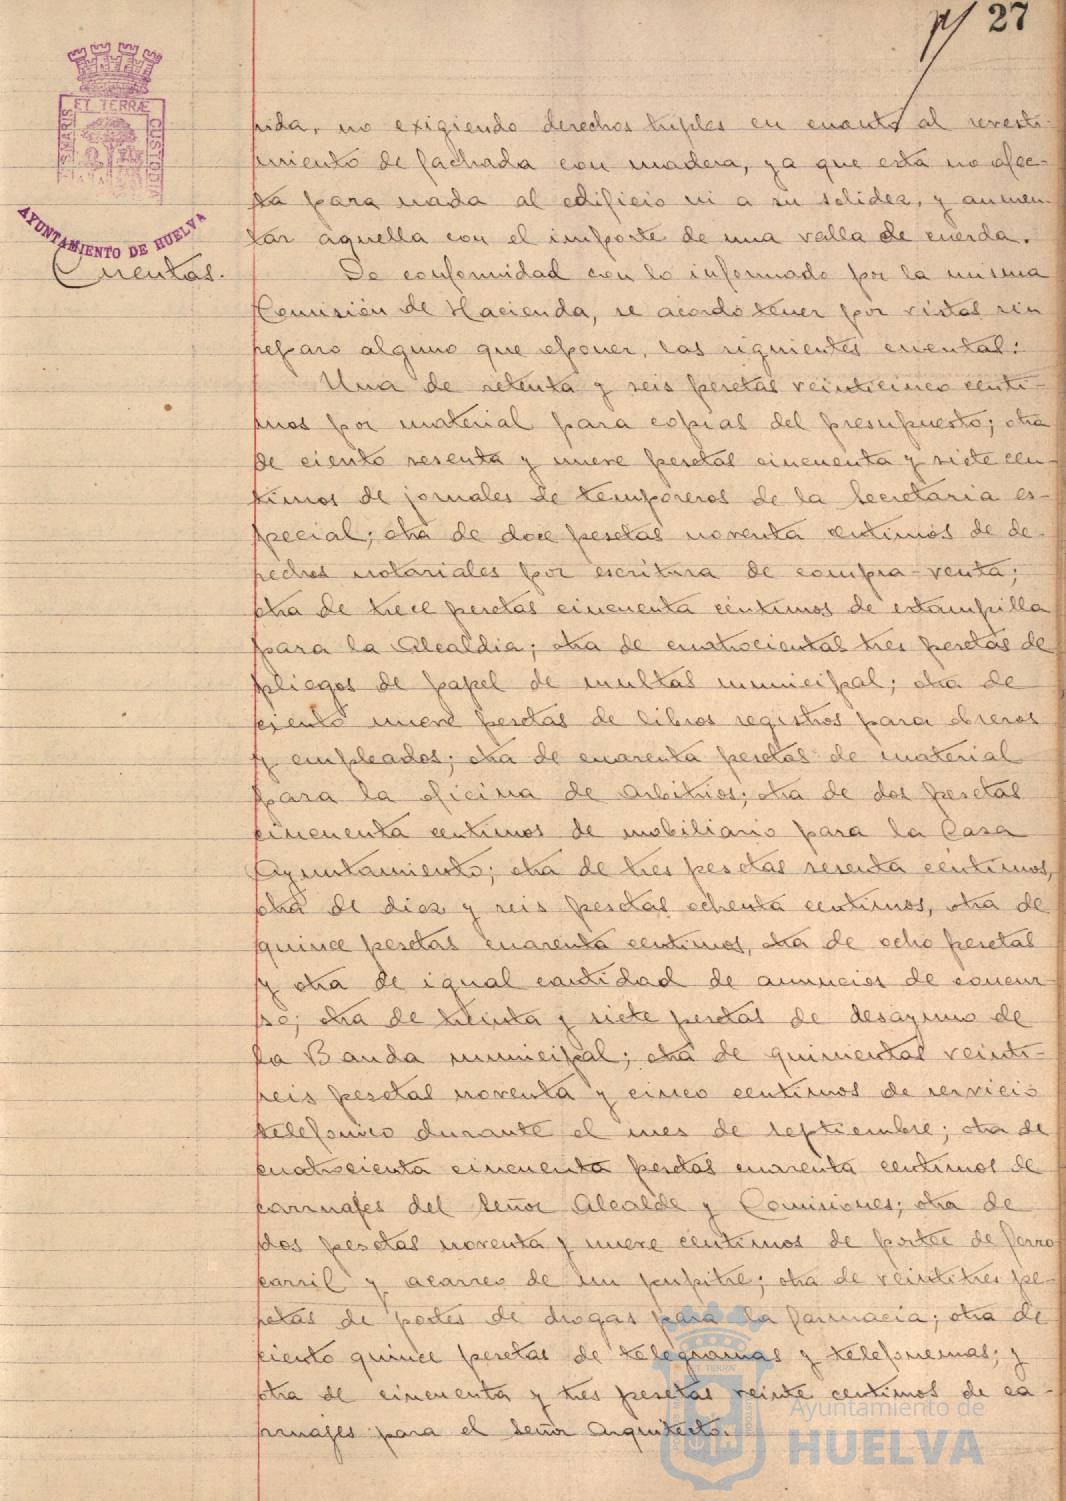 27
PORTUS MARIS ET TERRÆ CUSTODIA
AYUNTAMIENTO DE HUELVA
nida, no exigiendo derechos triples en cuanto al revesti-
miento de fachada con madera, ya que esta no afec-
ta para nada al edificio ni a su solidez, y aumen-
tar aquella con el importe de una valla de cuerda.
Cuentas.
De conformidad con lo informado por la misma
Comisión de Hacienda, se acordó tener por vistas sin
reparo alguno que oponer, las siguientes cuentas:
Una de setenta y seis pesetas veinticinco centi-
mos por material para copias del presupuesto; otra
de ciento sesenta y nueve pesetas cincuenta y siete cen-
timos de jornales de temporeros de la Secretaria es-
pecial; otra de doce pesetas noventa centimos de de-
rechos notariales por escritura de compra-venta;
otra de trece pesetas cincuenta céntimos de estampilla
para la Alcaldia; otra de cuatrocientas tres pesetas de
pliegos de papel de multas municipal; otra de
ciento nueve pesetas de libros registros para obreros
y empleados; otra de cuarenta pesetas de material
para la oficina de Arbitrios; otra de dos pesetas
cincuenta centimos de mobiliario para la Casa
Ayuntamiento; otra de tres pesetas sesenta céntimos,
otra de diez y seis pesetas ochenta centimos, otra de
quince pesetas cuarenta centimos, otra de ocho pesetas
y otra de igual cantidad de anuncios de concur-
so; otra de treinta y siete pesetas de desayuno de
la Banda municipal; otra de quinientas veinti-
seis pesetas noventa y cinco centimos de servicio
telefonico durante el mes de septiembre; otra de
cuatrocienta cincuenta pesetas cuarenta centimos de
carruajes del Señor Alcalde y Comisiones; otra de
dos pesetas noventa y nueve centimos de portee de ferro
carril y acarreo de un pupitre; otra de veintitres pe-
setas de portes de drogas para la farmacia; otra de
ciento quince pesetas de telegramas y telefonemas; y
otra de cincuenta y tres pesetas veinte centimos de ca-
rruajes para el Señor Arquitecto.
Ayuntamiento de
HUELVA